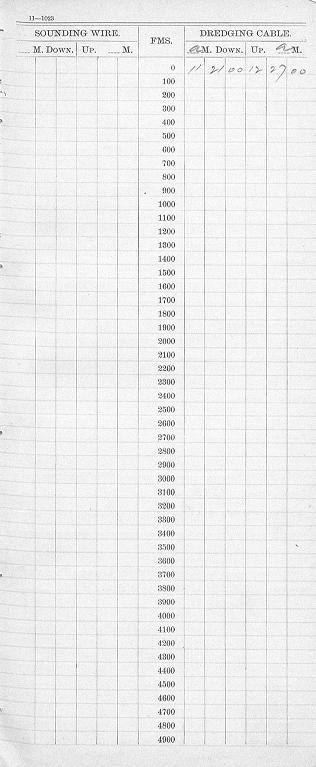 11—1023
SOUNDING WIRE. FMS. DREDGING CABLE.
M. Down. Up. M. a M. Down. Up. a M.
0 11 21 00 12 27 00
100
200
300
400
500
600
700
800
900
1000
1100
1200
1300
1400
1500
1600
1700
1800
1900
2000
2100
2200
2300
2400
2500
2600
2700
2800
2900
3000
3100
3200
3300
3400
3500
3600
3700
3800
3900
4000
4100
4200
4300
4400
4500
4600
4700
4800
4900